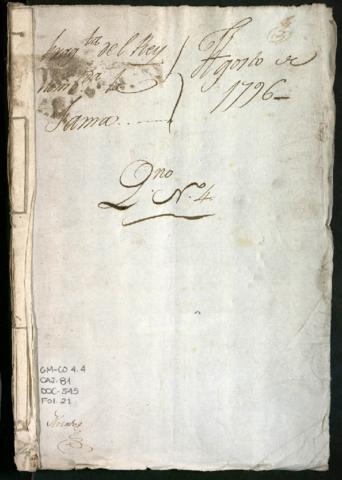 Fragta del Rey
nomda la
Fama
Agosto de
1796
Qno No. 4
GM-CO 4.4
CAJ. 81
DOC-545
FOL. 21